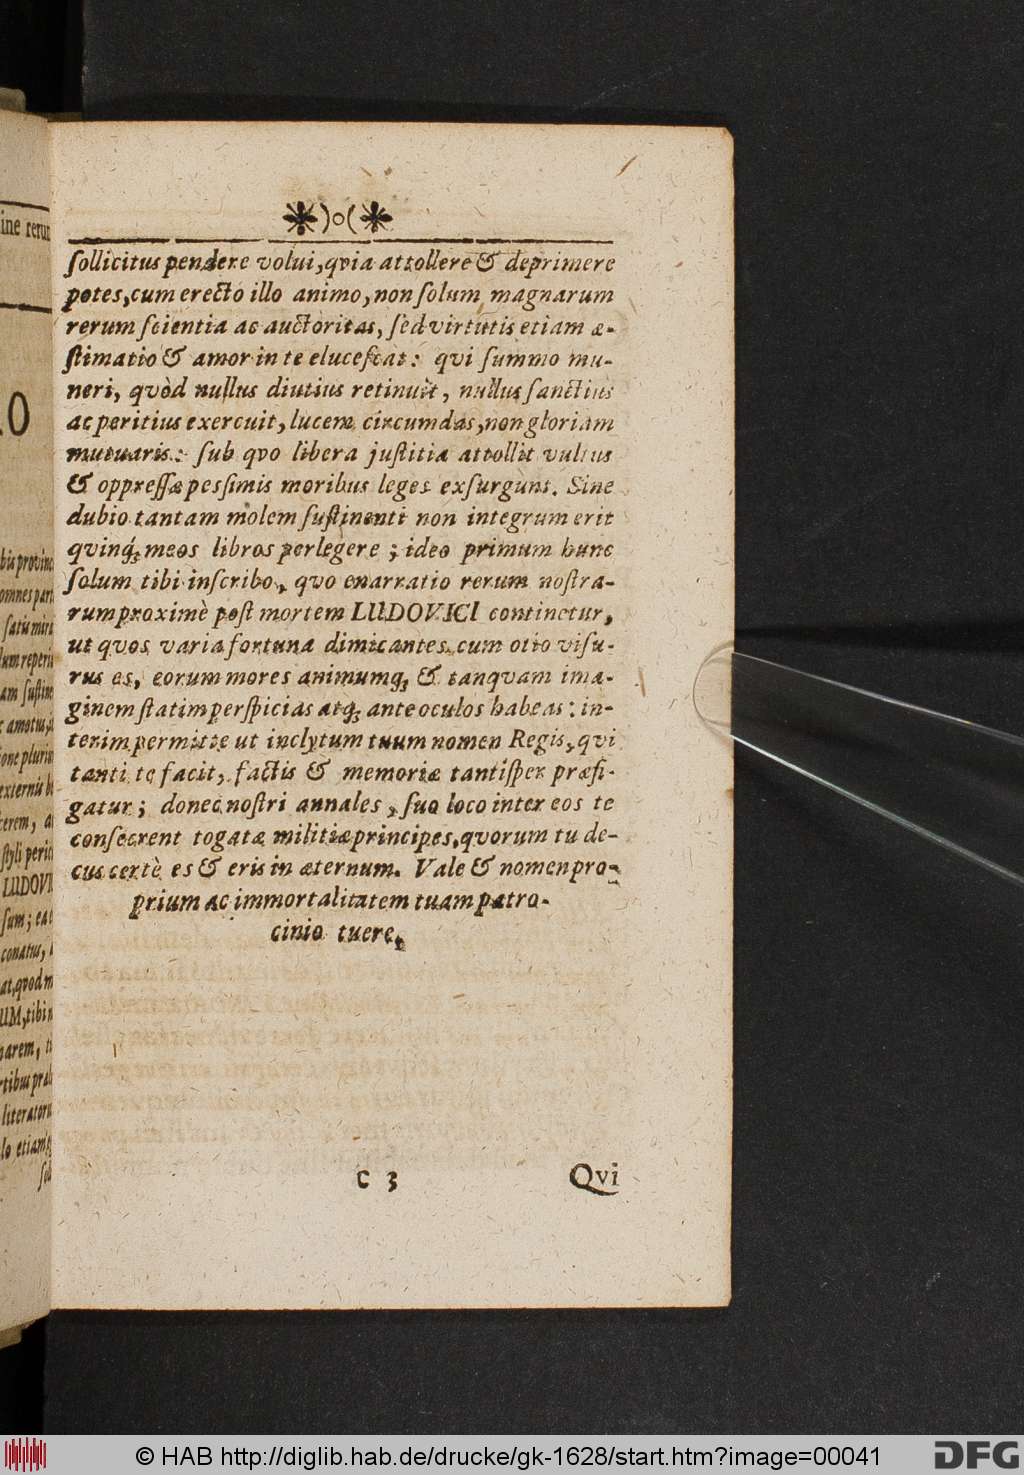 )o(
sollicitus pendere volui, qvia attollere & deprimere
potes, cum erecto illo animo, non solum magnarum
rerum scientia ac auctoritas, sed virtutis etiam æ-
stimatio & amor in te elucescat: qvi summo mu-
neri, qvòd nullus diutius retinuit, nullus sanctius
ac peritius exercuit, lucem circumdas, non gloriam
mutuaris: sub qvo libera justitia attollit vultus
& oppressæ pessimis moribus leges exsurgunt. Sine
dubio tantam molem sustinenti non integrum erit
qvinq́; meos libros perlegere; ideo primum hunc
solum tibi inscribo, qvo enarratio rerum nostra-
rum proximè post mortem LUDOVICI continetur,
ut qvos varia fortuna dimicantes cum otio visu-
rus es, eorum mores animumq; & tanqvam ima-
ginem statim perspicias atq; ante oculos habeas: in-
terim permitte ut inclytum tuum nomen Regis, qvi
tanti te facit, factis & memoriæ tantisper præfi-
gatur; donec nostri annales, suo loco inter eos te
consecrent togatæ militiæ principes, qvorum tu de-
cus certè es & eris in æternum. Vale & nomen pro-
prium ac immortalitatem tuam patro-
cinio tuere.
C 3 Qvi
ine rerum
O
satu miri
cerem, a
styli peric
LUDOVI
conatus,
at, qvod m
UM, tibi
narem, t
© HAB http://diglib.hab.de/drucke/gk-1628/start.htm?image=00041
DFG